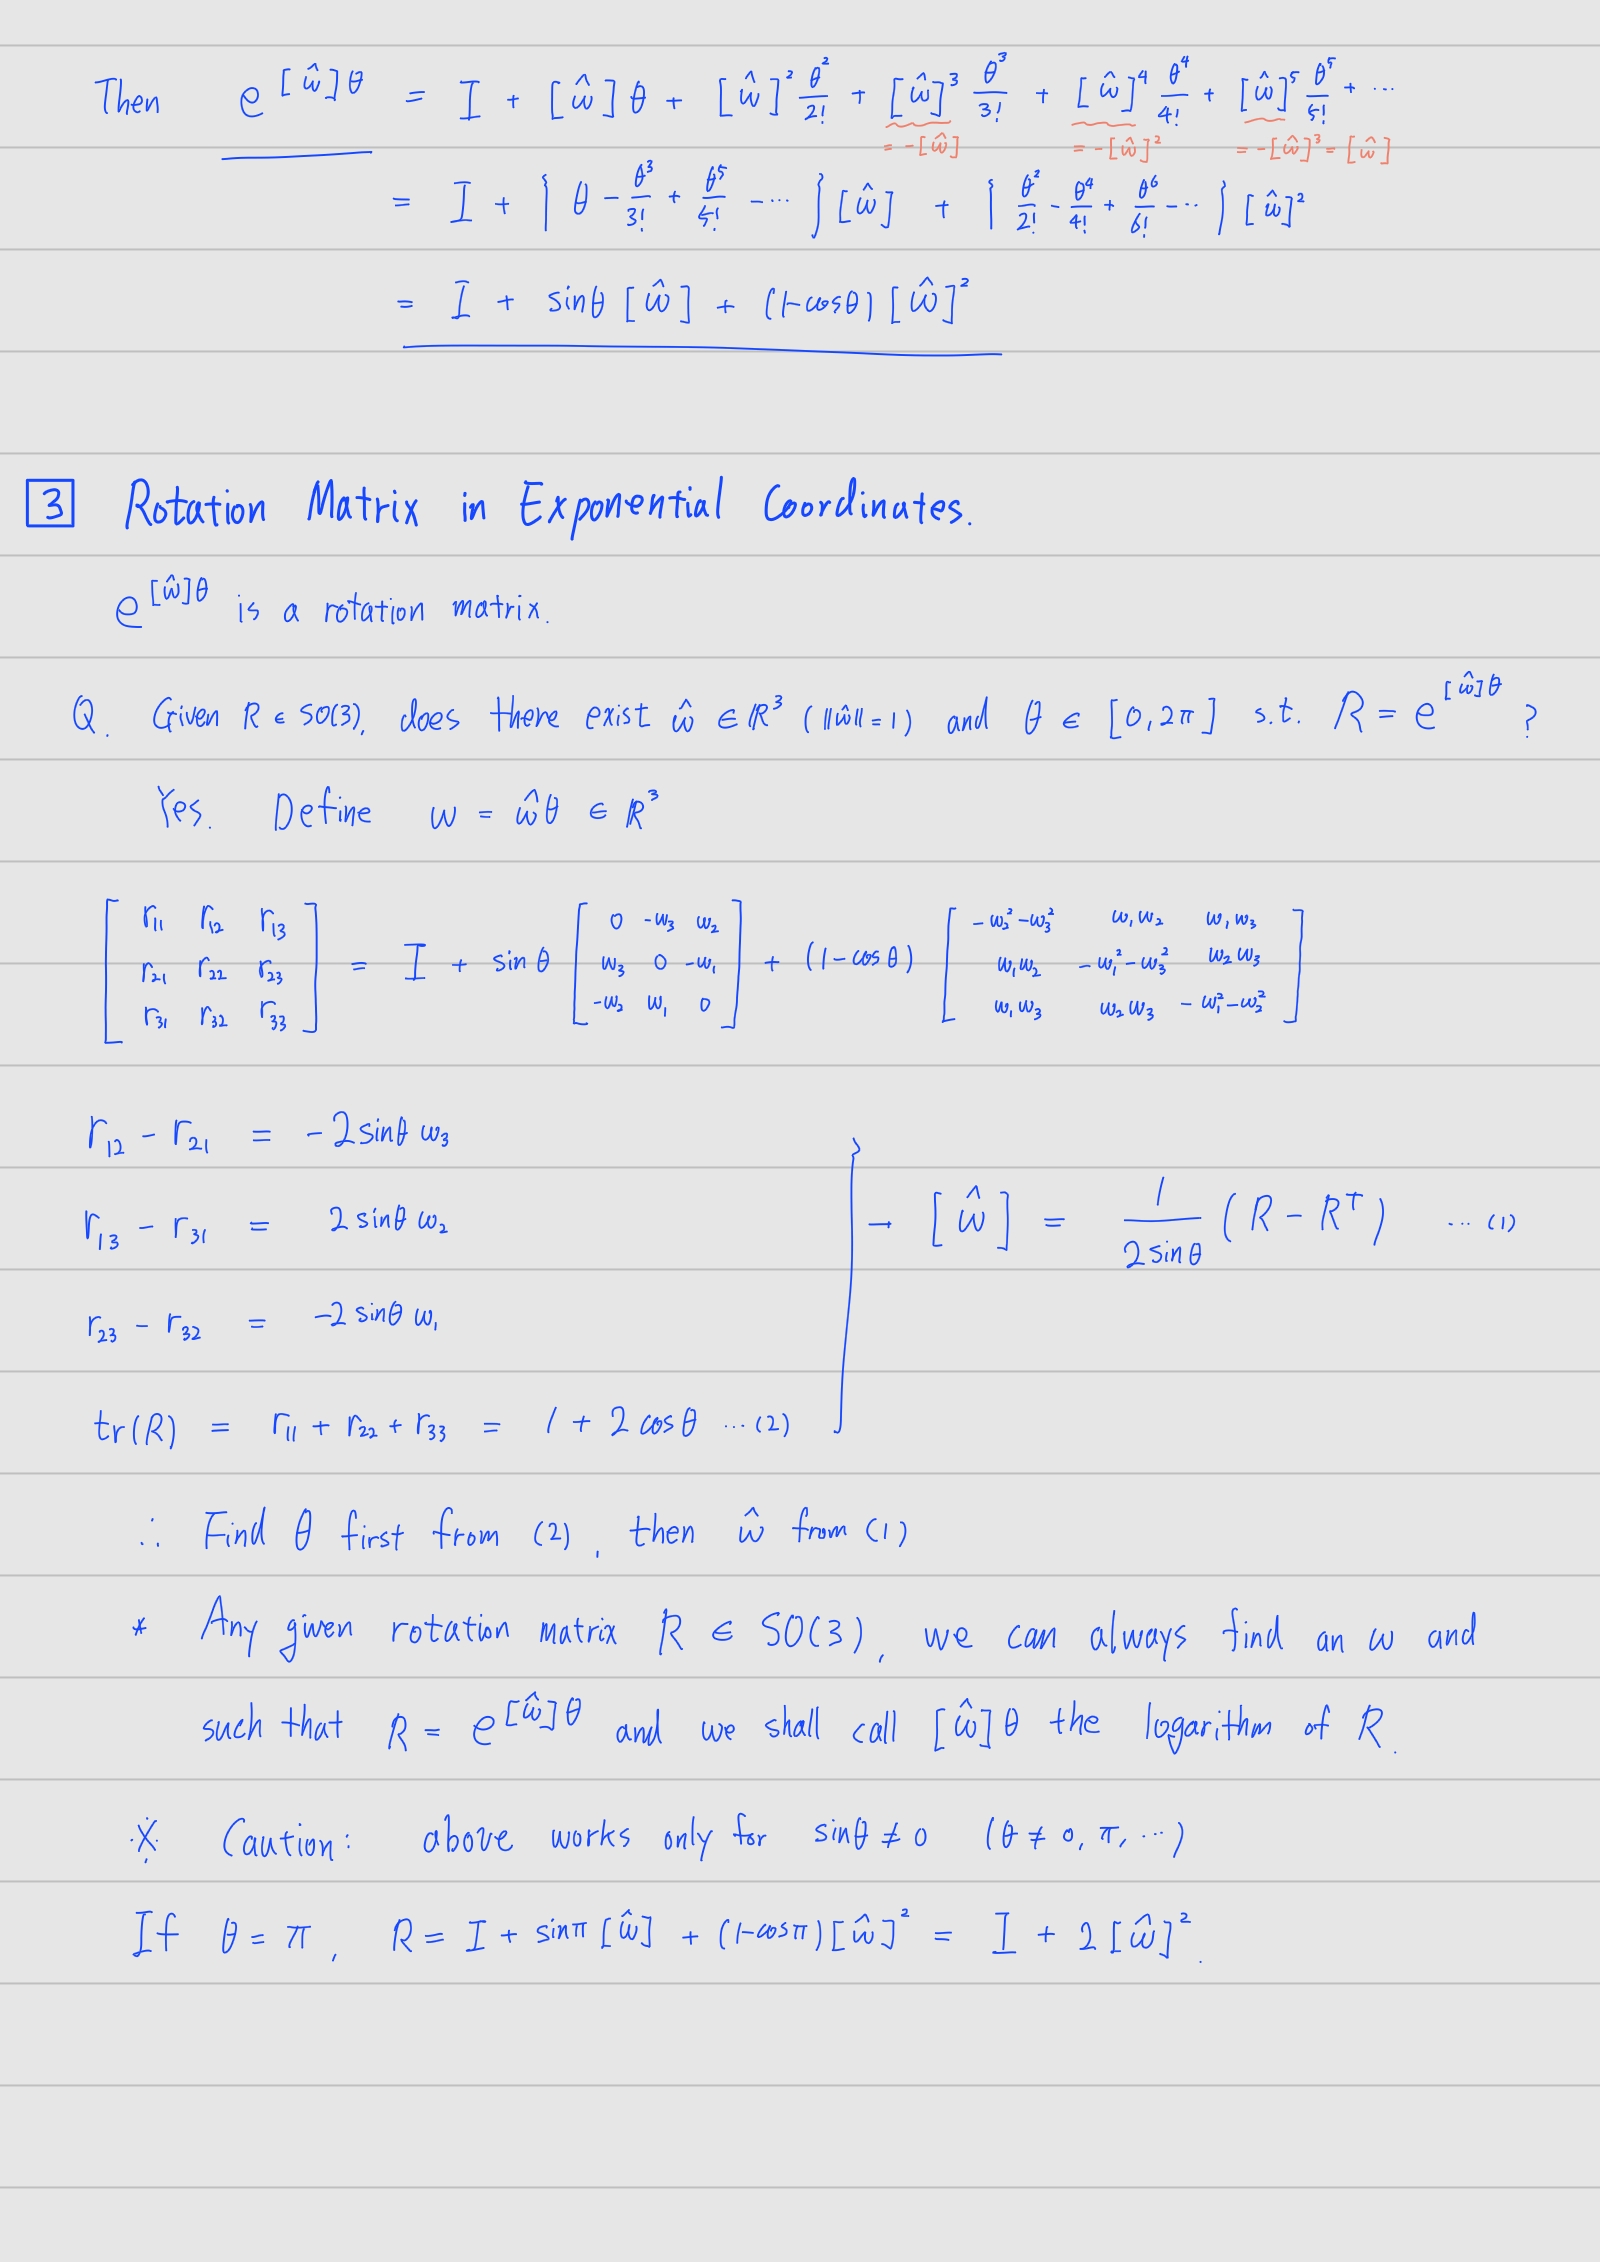 Then e^{[ŵ]θ} = I + [ŵ]θ + [ŵ]² θ²/2! + [ŵ]³ θ³/3! + [ŵ]⁴ θ⁴/4! + [ŵ]⁵ θ⁵/5! + ...
= -[ŵ] = -[ŵ]² = -[ŵ]³ = [ŵ]
= I + { θ - θ³/3! + θ⁵/5! - ... } [ŵ] + { θ²/2! - θ⁴/4! + θ⁶/6! - ... } [ŵ]²
= I + sinθ [ŵ] + (1-cosθ) [ŵ]²
3 Rotation Matrix in Exponential Coordinates.
e^{[ŵ]θ} is a rotation matrix.
Q. Given R ∈ SO(3), does there exist ŵ ∈ ℝ³ (‖ŵ‖ = 1) and θ ∈ [0, 2π] s.t. R = e^{[ŵ]θ} ?
Yes. Define w = ŵθ ∈ ℝ³
[ r₁₁ r₁₂ r₁₃ ; r₂₁ r₂₂ r₂₃ ; r₃₁ r₃₂ r₃₃ ] = I + sinθ [ 0 -w₃ w₂ ; w₃ 0 -w₁ ; -w₂ w₁ 0 ] + (1-cosθ) [ -w₂²-w₃² w₁w₂ w₁w₃ ; w₁w₂ -w₁²-w₃² w₂w₃ ; w₁w₃ w₂w₃ -w₁²-w₂² ]
r₁₂ - r₂₁ = -2sinθ w₃
r₁₃ - r₃₁ = 2sinθ w₂ → [ŵ] = 1/(2sinθ) (R - Rᵀ) ... (1)
r₂₃ - r₃₂ = -2sinθ w₁
tr(R) = r₁₁ + r₂₂ + r₃₃ = 1 + 2cosθ ... (2)
∴ Find θ first from (2), then ŵ from (1)
* Any given rotation matrix R ∈ SO(3), we can always find an w and
such that R = e^{[ŵ]θ} and we shall call [ŵ]θ the logarithm of R.
※ Caution: above works only for sinθ ≠ 0 (θ ≠ 0, π, ...)
If θ = π, R = I + sinπ [ŵ] + (1-cosπ)[ŵ]² = I + 2[ŵ]².